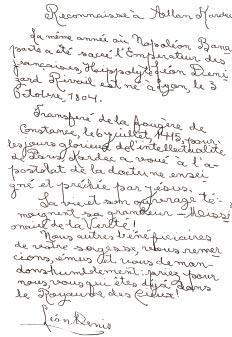 Reconnaisse à Allan Kardec
La même année où Napoléon Bona
parte a été sacré l'Empereur des
françaises, Hyppolyte Léon Deni
zard Rivail est né à Lyon, le 3
Octobre, 1804.
Transfiré de la fougère de
Constance, le 6 juillet, 1415, pour
les jours glorieux de l'intellectualité
de Paris, Kardec a voué à l'a-
postolat de la doctrine ensei
gné et prêchée par Jésus.
La vie et son ouvrage té-
moignent sa grandeur – Missi
onnaire de la Verité!
Nous autres, bénéficiaires
de vostre sagesse, vous remer
cions, émus et vous deman-
dons humblement: priez pour
nous, vous qui êtes déjà dans
le Royaume des Cieux!
Léon Denis